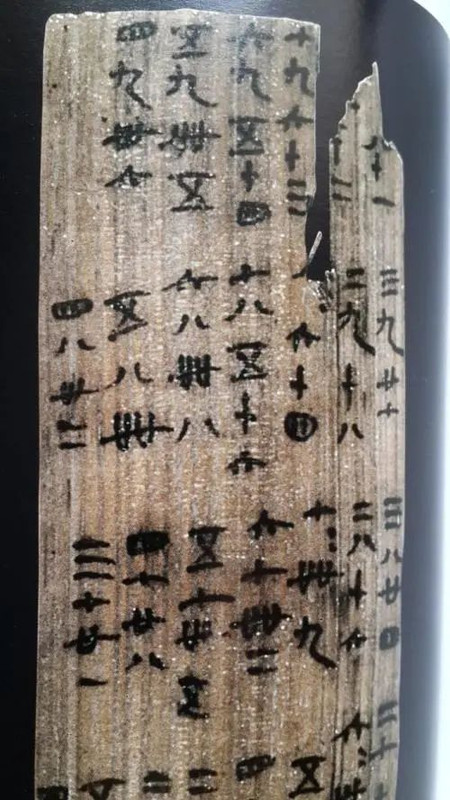 八十一
二
七九六十三
六九五十四
五九卌五
四九卅六
三九廿七
二九十八
八六十四
七八五十六
六八卌八
五八卌
四八卅二
三八廿四
二八十六
七〻卌九
六七卌二
五七卅五
四七廿八
三七廿一
二七
六〻卅
五
四
三
二
五
四